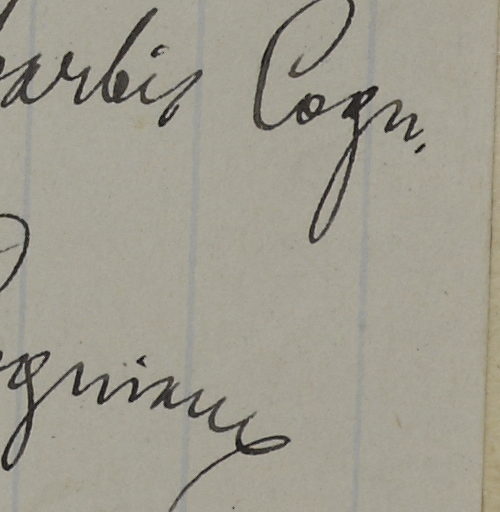 barbis Cogn.
ogniaux